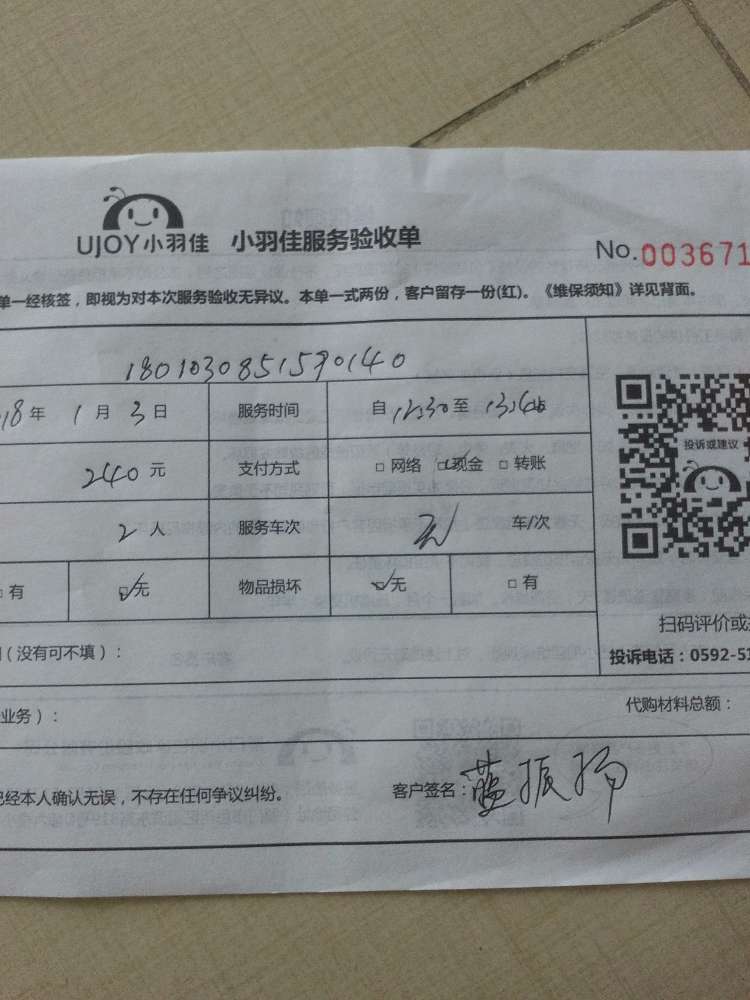 UJOY小羽佳 小羽佳服务验收单 No.003671
单一经核签，即视为对本次服务验收无异议。本单一式两份，客户留存一份(红)。《维保须知》详见背面。
1801030851590140
18年 1月 3日 服务时间 自 12:30 至
240元 支付方式 □网络 □现金 □转账
2人 服务车次 车/次
□有 □无 物品损坏 □无 □有
(没有可不填)：
投诉或建议
扫码评价或
投诉电话：0592-51
业务)：
代购材料总额：
已经本人确认无误，不存在任何争议纠纷。 客户签名：蓝振扬